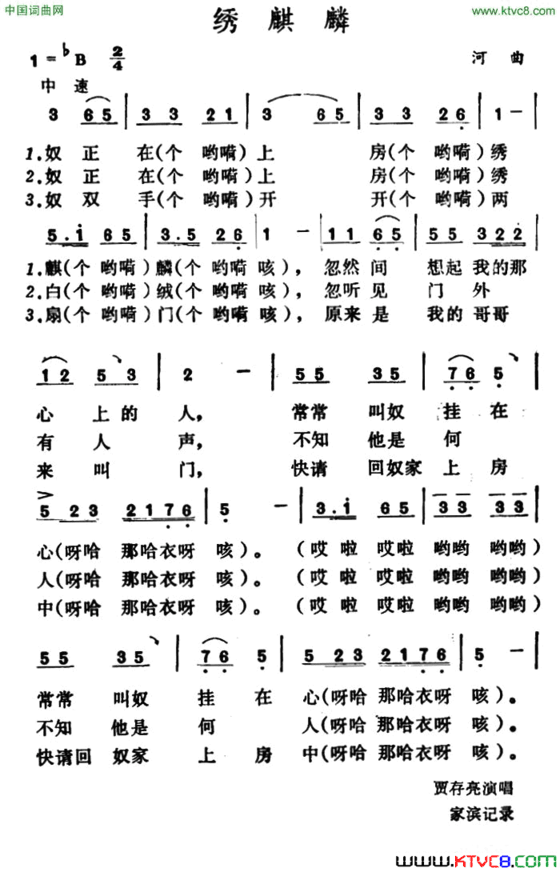 中国词曲网 www.ktvc8.com
绣麒麟
1=♭B 2/4 河曲
中速
3 65 | 33 21 | 3 65 | 33 26 | 1 - |
1.奴正在(个哟嗬)上房(个哟嗬)绣
2.奴正在(个哟嗬)上房(个哟嗬)绣
3.奴双手(个哟嗬)开开(个哟嗬)两
5.i 65 | 3.5 26 | 1 - | 11 65 | 55 322 |
1.麒(个哟嗬)麟(个哟嗬咳),忽然间想起我的那
2.白(个哟嗬)绒(个哟嗬咳),忽听见门外
3.扇(个哟嗬)门(个哟嗬咳),原来是我的哥哥
12 53 | 2 - | 55 35 | 76 5 |
心上的人,常常叫奴挂在
有人声,不知他是何
来叫门,快请回奴家上房
5 23 2176 | 5 - | 3.i 65 | 33 33 |
心(呀哈那哈衣呀咳)。(哎啦哎啦哟哟哟哟)
人(呀哈那哈衣呀咳)。(哎啦哎啦哟哟哟哟)
中(呀哈那哈衣呀咳)。(哎啦哎啦哟哟哟哟)
55 35 | 76 5 | 5 23 2176 | 5 - |
常常叫奴挂在心(呀哈那哈衣呀咳)。
不知他是何人(呀哈那哈衣呀咳)。
快请回奴家上房中(呀哈那哈衣呀咳)。
贾存亮演唱
家滨记录
www.KTVC8.com